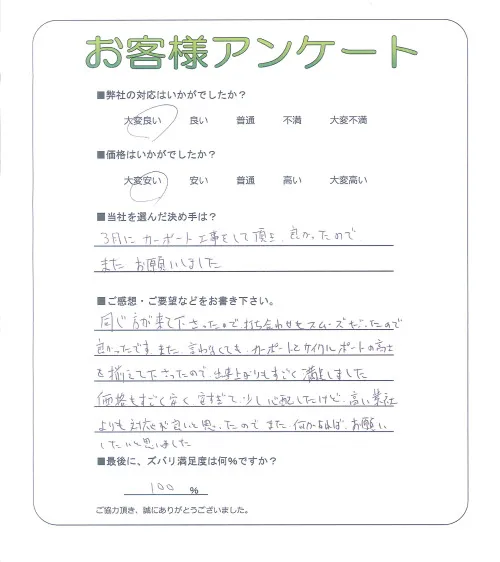 お客様アンケート
■弊社の対応はいかがでしたか？
大変良い 良い 普通 不満 大変不満
■価格はいかがでしたか？
大変安い 安い 普通 高い 大変高い
■当社を選んだ決め手は？
3月に カーポート工事をして頂き、良かったので
また お願いしました
■ご感想・ご要望などをお書き下さい。
同じ方が来て下さったので打ち合わせもスムーズだったので
良かったです。また、言わなくても、カーポートとサイクルポートの高さ
を揃えて下さったので、出来上がりもすごく満足しました
価格もすごく安く 安すぎて、少し心配したけど、高い業社
よりも対応が良いと思ったので また 何かあれば、お願い
したいと思いました
■最後に、ズバリ満足度は何％ですか？
100 ％
ご協力頂き、誠にありがとうございました。